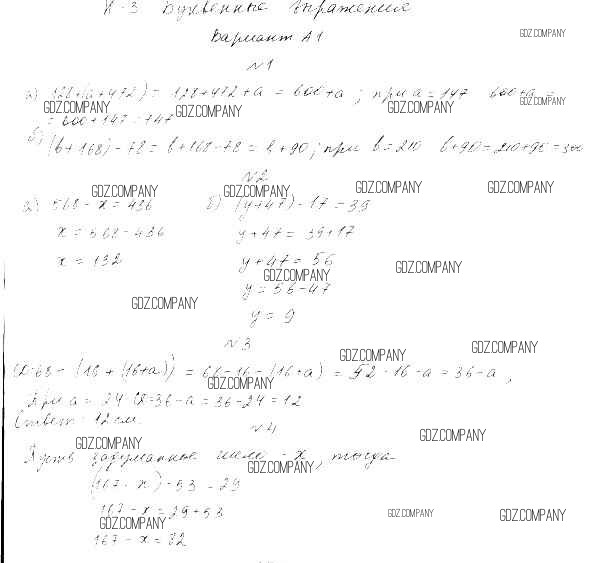 К-3 Буквенные выражения
Вариант А1
GDZ.COMPANY
№1
а) 128+(а+472) = 128+472+а = 600+а; при а=147 600+а =
GDZ.COMPANY GDZ.COMPANY GDZ.COMPANY GDZ.COMPANY
= 600+147=747
б) (b+168)-78 = b+168-78 = b+90; при b=210 b+90=210+90=300
№2
GDZ.COMPANY GDZ.COMPANY GDZ.COMPANY GDZ.COMPANY
а) 568-x=436 б) (y+47)-17=39
x=568-436 y+47=39+17
x=132 y+47=56
GDZ.COMPANY GDZ.COMPANY
y=56-47
GDZ.COMPANY
y=9
№3
GDZ.COMPANY GDZ.COMPANY
68-(16+(16+а)) = 68-16-(16+а) = 52-16-а=36-а,
GDZ.COMPANY
При а=24 36-а=36-24=12
Ответ: 12 см.
№4
GDZ.COMPANY GDZ.COMPANY
Пусть задуманное число - x, тогда
GDZ.COMPANY
(167-x)-53=29
167-x=29+53
GDZ.COMPANY GDZ.COMPANY GDZ.COMPANY
167-x=82